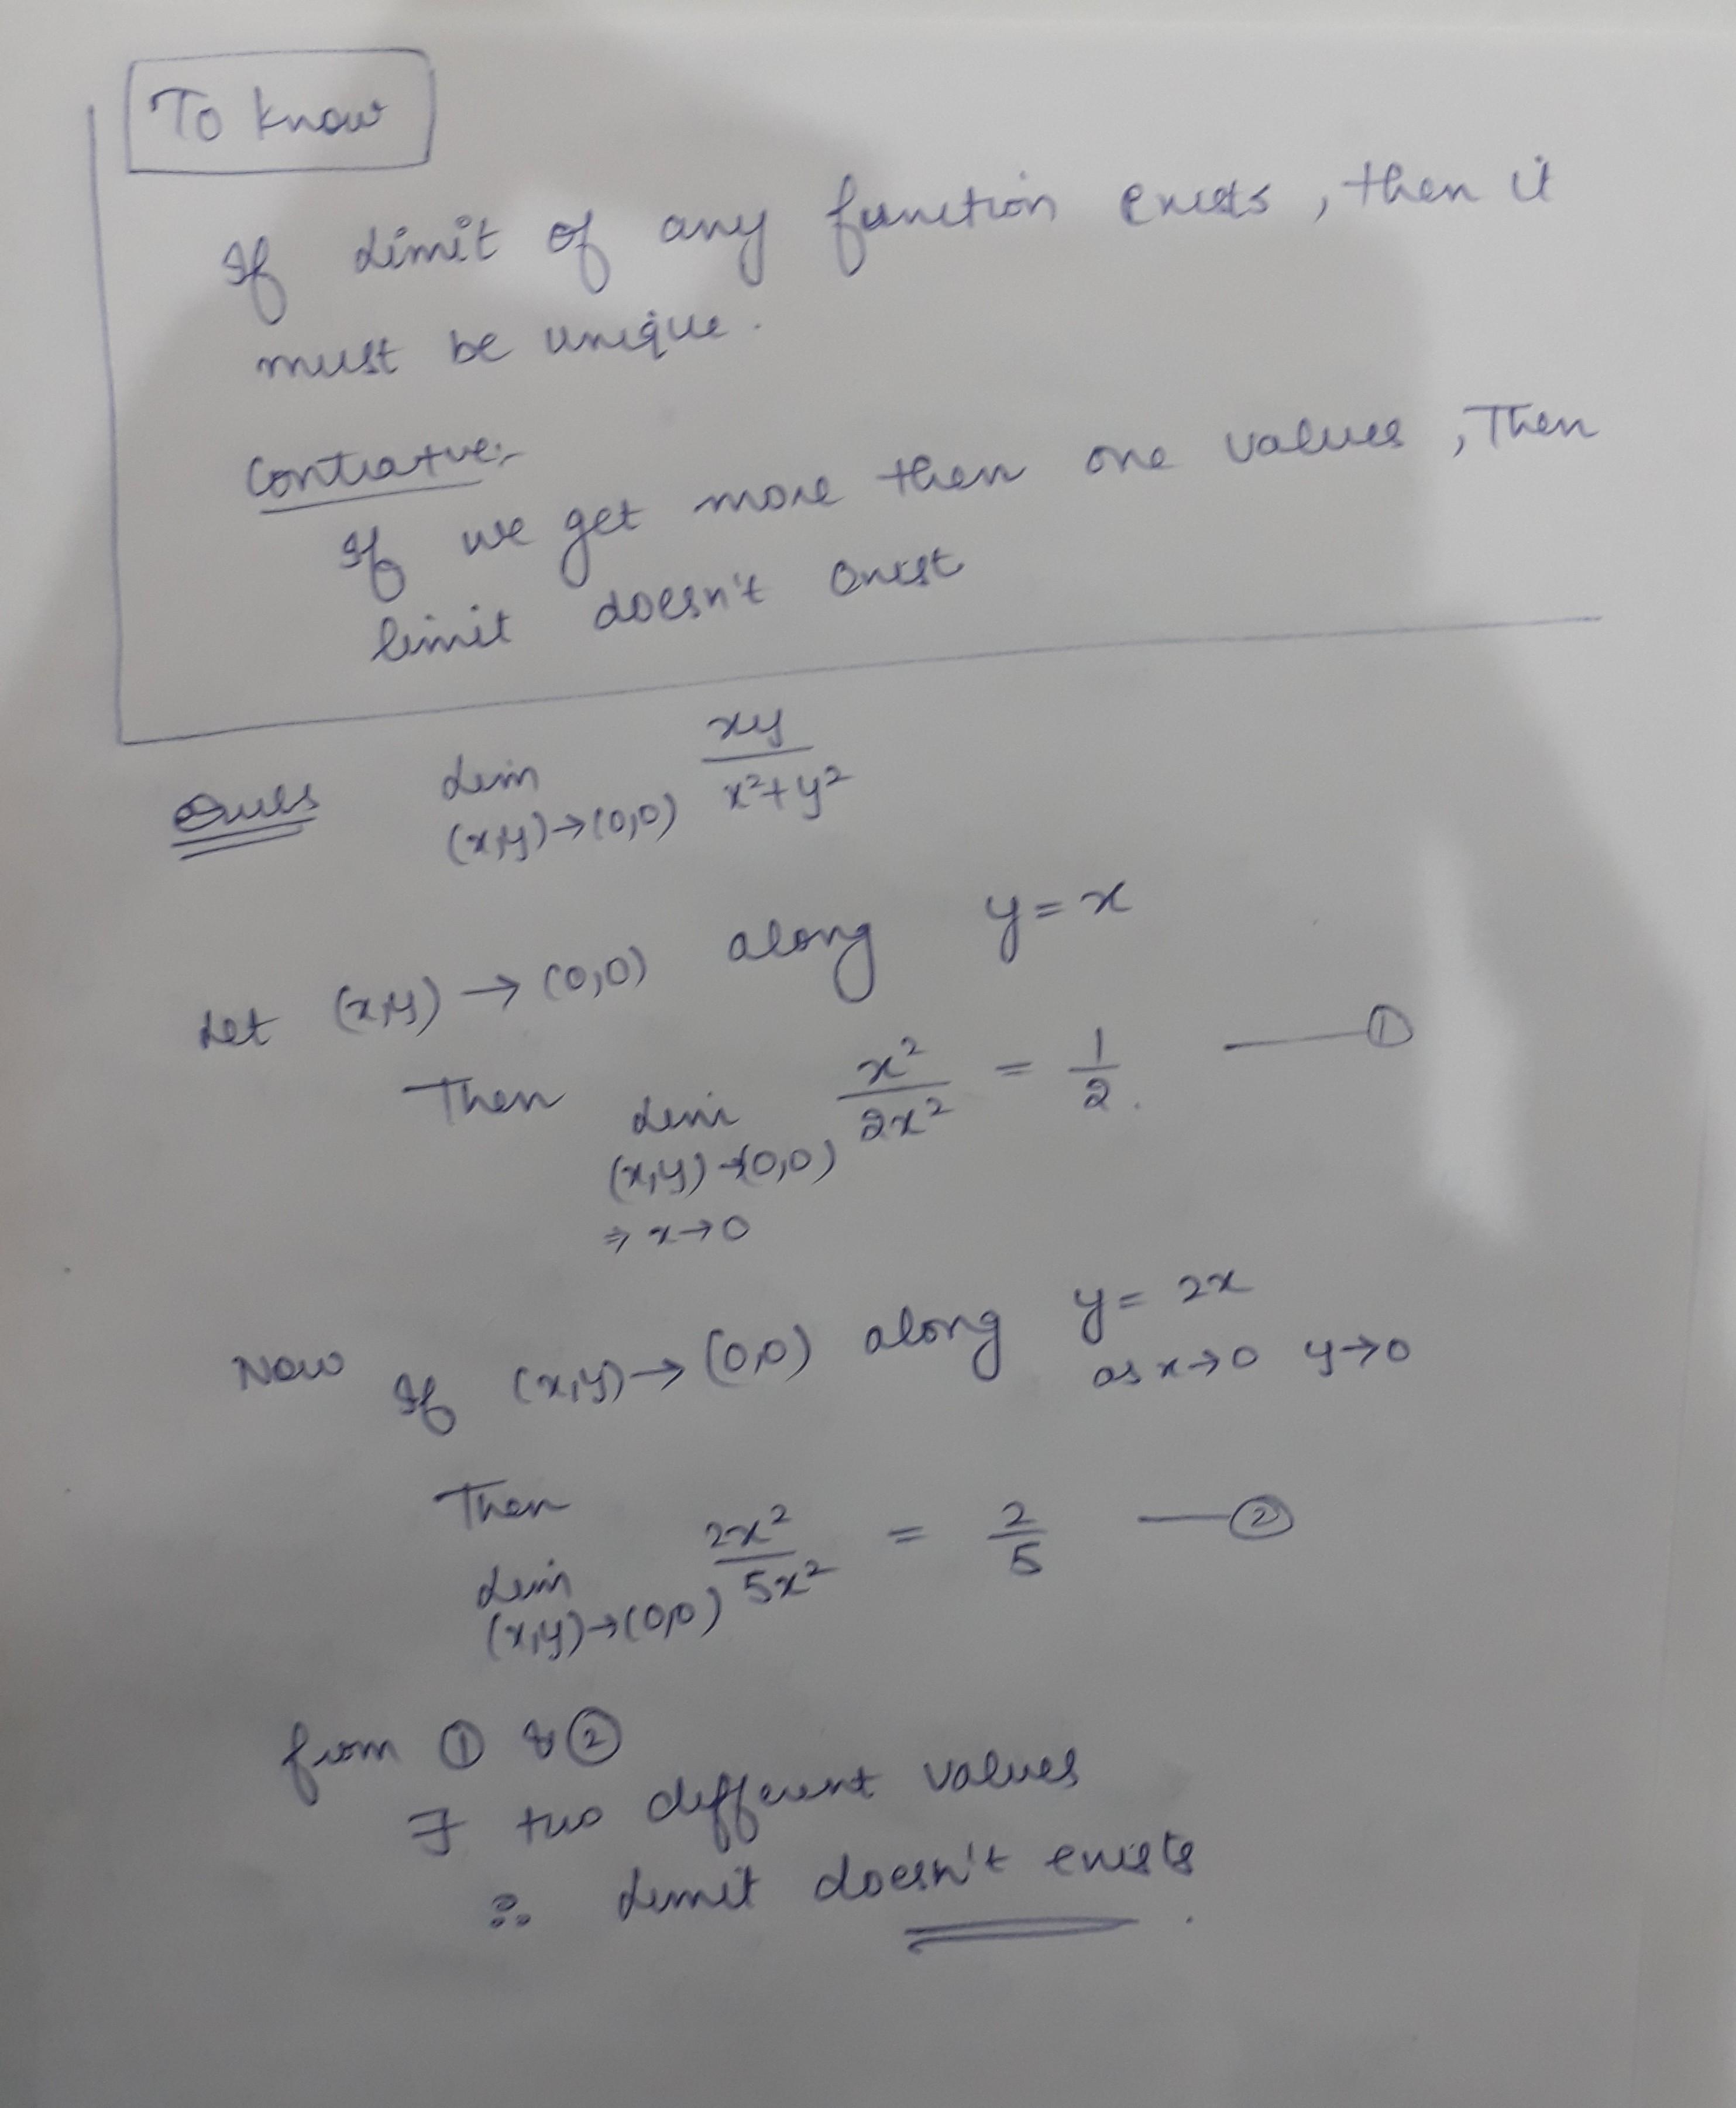 To know
If Limit of any function exists, then it
must be unique.
Contrative:-
If we get more then one values, Then
limit doesn't exist
Ques Lim xy / x²+y²
(x,y)→(0,0)
Let (x,y) → (0,0) along y=x
Then Lim x² / 2x² = 1/2. —①
(x,y)→(0,0)
⇒ x→0
Now If (x,y)→(0,0) along y= 2x
as x→0 y→0
Then
Lim 2x² / 5x² = 2/5 —②
(x,y)→(0,0)
from ① & ②
∃ two different values
∴ Limit doesn't exists.